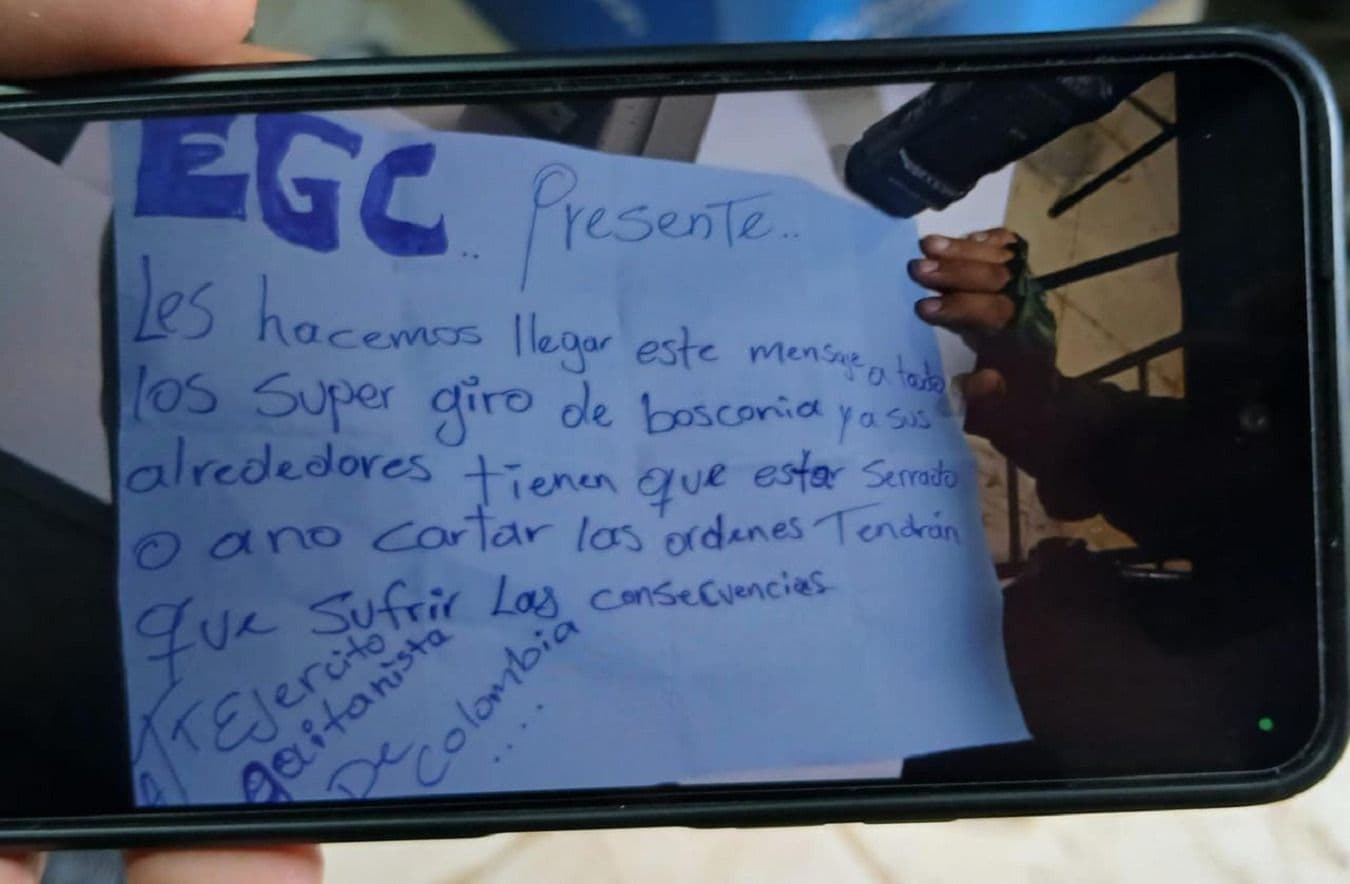 EGC.. Presente..
Les hacemos llegar este mensaje a todo
los super giro de bosconia y a sus
alrededores tienen que estar serrado
o ano cartar las ordenes Tendrán
que sufrir Las consecuencias
ATT EJercito
gaitanista
De colombia
....